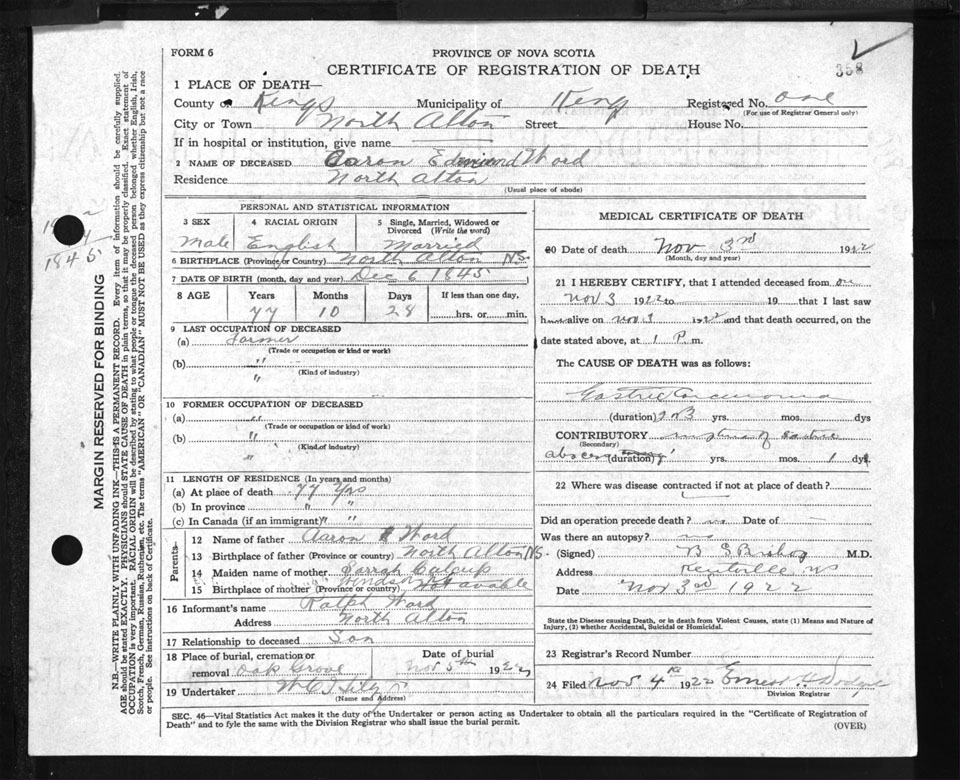 FORM 6
PROVINCE OF NOVA SCOTIA
CERTIFICATE OF REGISTRATION OF DEATH
358
1 PLACE OF DEATH—
County of Kings Municipality of Kings Registered No. one
(For use of Registrar General only)
City or Town North Alton Street House No.
If in hospital or institution, give name
2 NAME OF DECEASED Aaron Edmund Word
Residence North Alton
(Usual place of abode)
PERSONAL AND STATISTICAL INFORMATION
3 SEX 4 RACIAL ORIGIN 5 Single, Married, Widowed or Divorced (Write the word)
Male English Married
6 BIRTHPLACE (Province or Country) North Alton NS.
7 DATE OF BIRTH (month, day and year) Dec 6 1845
8 AGE Years Months Days If less than one day,
77 10 28 hrs. or min.
9 LAST OCCUPATION OF DECEASED
(a) Farmer
(Trade or occupation or kind or work)
(b) "
(Kind of industry)
"
10 FORMER OCCUPATION OF DECEASED
(a) "
(Trade or occupation or kind of work)
(b) "
(Kind of industry)
"
11 LENGTH OF RESIDENCE (In years and months)
(a) At place of death 77 Yrs
(b) In province " "
(c) In Canada (if an immigrant) " "
Parents
12 Name of father Aaron Word
13 Birthplace of father (Province or country) North Alton NS.
14 Maiden name of mother Sarrah
15 Birthplace of mother (Province or country) Windsor
16 Informant's name Ralph Word
Address North Alton
17 Relationship to deceased Son
18 Place of burial, cremation or removal Oak Grove Date of burial Nov 5th 1922
19 Undertaker
(Name and Address)
MEDICAL CERTIFICATE OF DEATH
20 Date of death Nov 3rd 1922
(Month, day and year)
21 I HEREBY CERTIFY, that I attended deceased from on
Nov 3 1922 to 19 that I last saw
h alive on nov 3 1922 and that death occurred, on the
date stated above, at 1 P. m.
The CAUSE OF DEATH was as follows:
Gastric Carcinoma
(duration) yrs. mos. dys
CONTRIBUTORY rupture of
(Secondary)
abscess (duration) yrs. mos. 1 dys.
22 Where was disease contracted if not at place of death?
Did an operation precede death? no Date of —
Was there an autopsy? no
(Signed) B S Bishop M.D.
Address Kentville NS
Date Nov 3rd 1922
State the Disease causing Death, or in death from Violent Causes, state (1) Means and Nature of
Injury, (2) whether Accidental, Suicidal or Homicidal.
23 Registrar's Record Number
24 Filed Nov 4th 1922 Ernest H
Division Registrar
SEC. 46—Vital Statistics Act makes it the duty of the Undertaker or person acting as Undertaker to obtain all the particulars required in the "Certificate of Registration of
Death" and to fyle the same with the Division Registrar who shall issue the burial permit.
(OVER)
MARGIN RESERVED FOR BINDING
N.B.—WRITE PLAINLY WITH UNFADING INK—THIS IS A PERMANENT RECORD. Every item of information should be carefully supplied.
AGE should be stated EXACTLY. PHYSICIANS should STATE CAUSE OF DEATH in plain terms, so that it may be properly classified. Exact statement of
OCCUPATION is very important. RACIAL ORIGIN will be described by stating to what people or tongue the deceased person belonged whether English, Irish,
Scotch, French, German, Russian, Ruthenian, etc. The terms "AMERICAN" OR "CANADIAN" MUST NOT BE USED as they express citizenship but not a race
or people. See instructions on back of Certificate.
1845